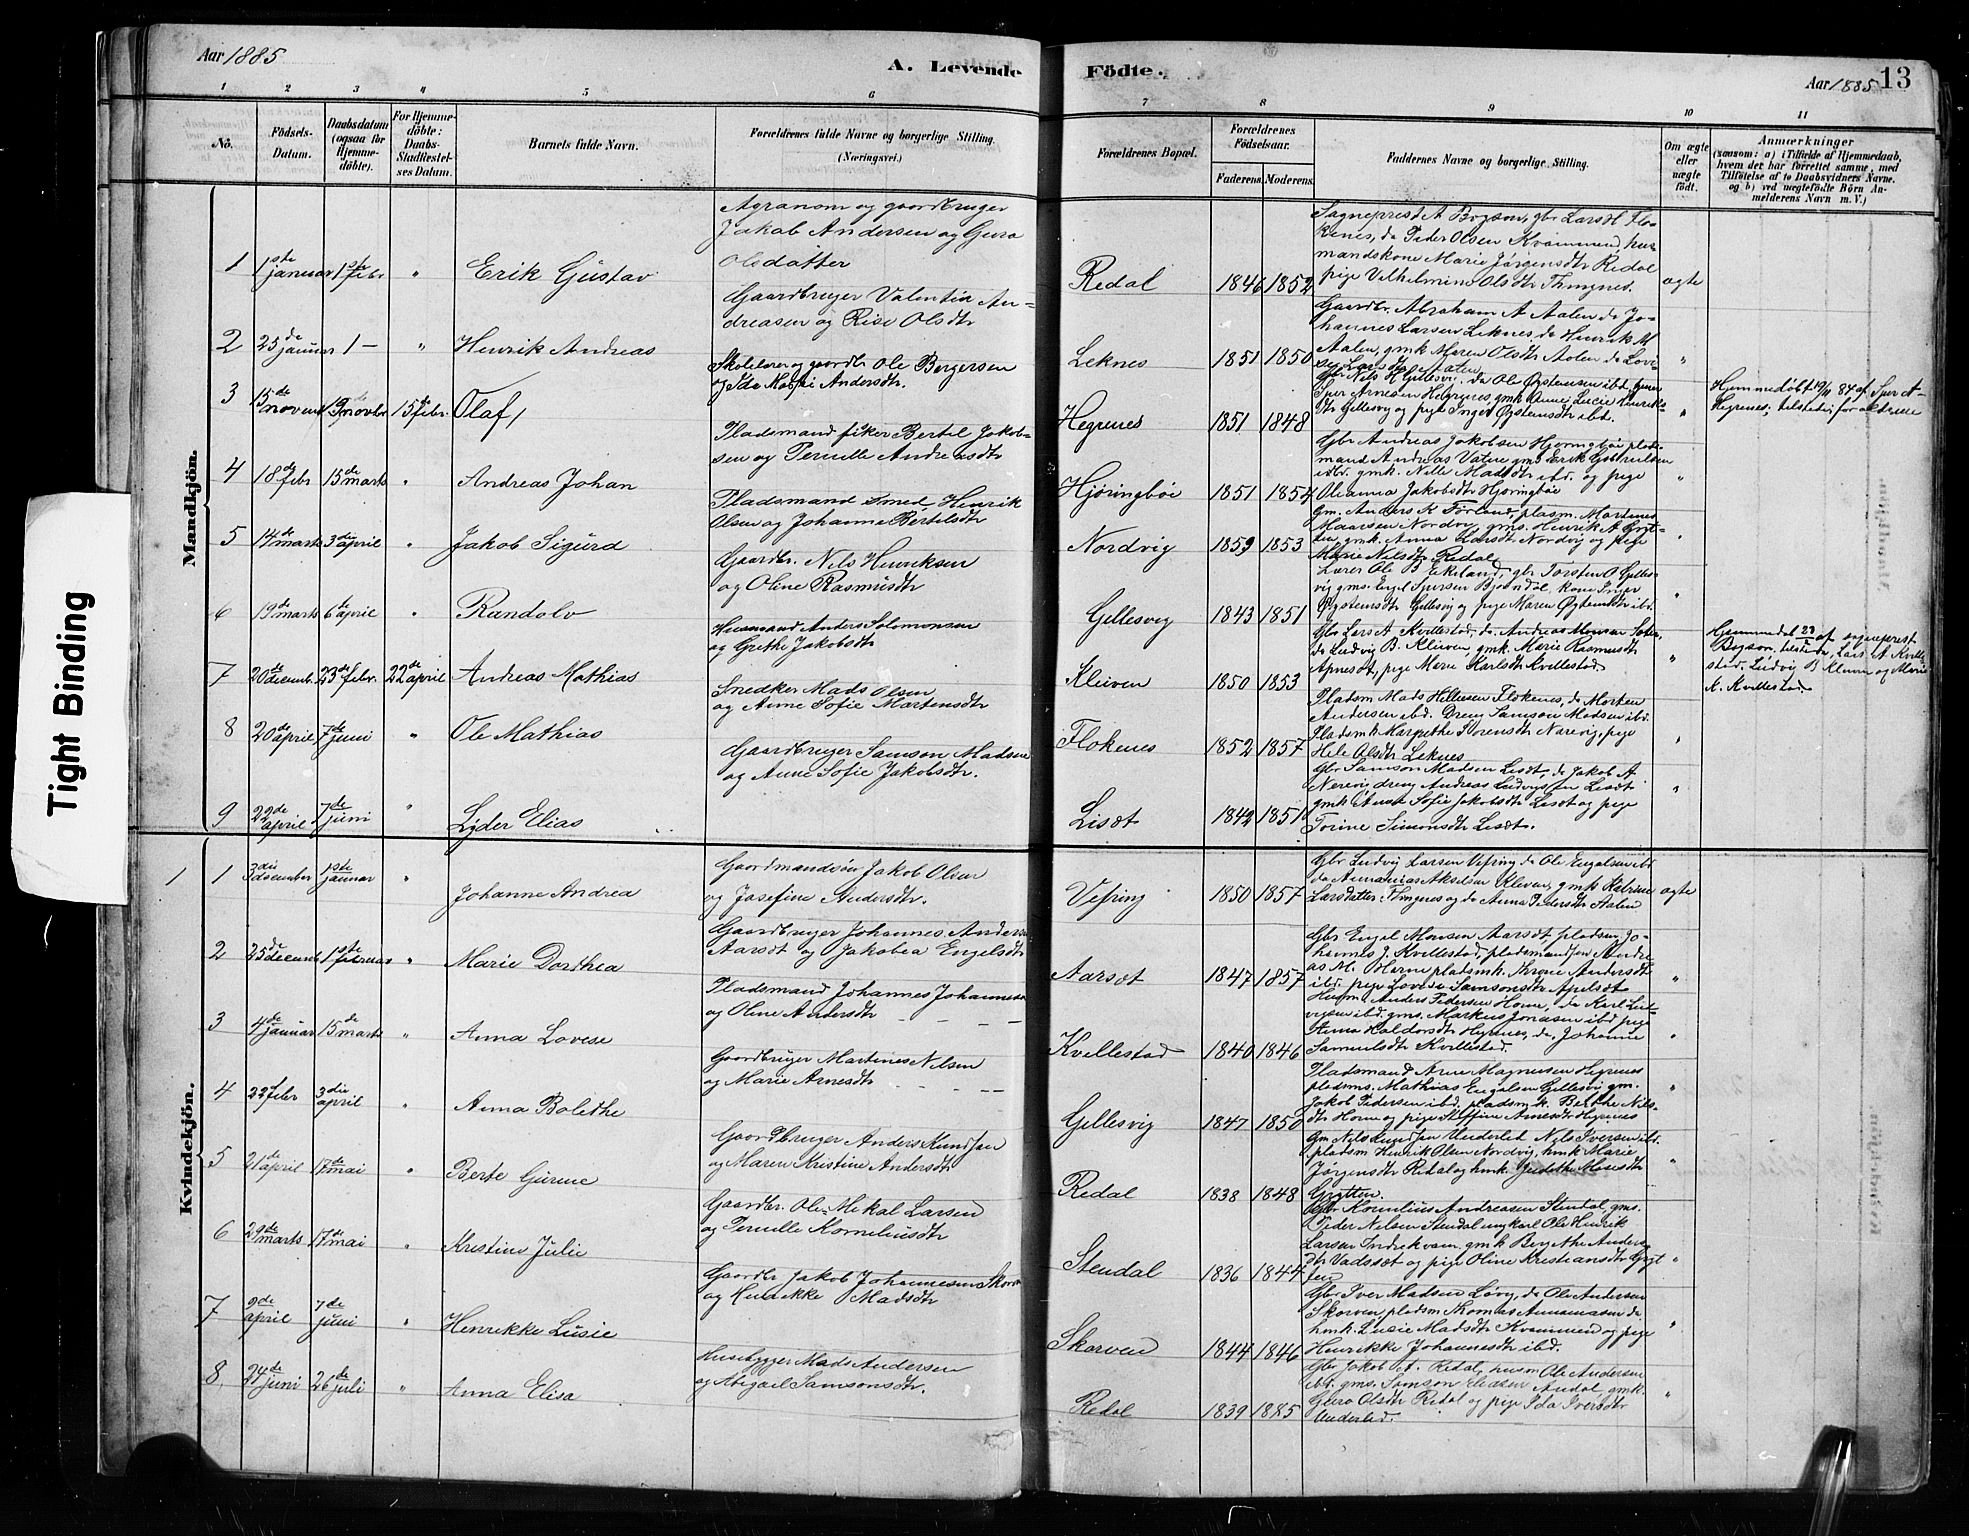 Aar 1885
A. Levende
Födte.
Aar 1885 13
1 2 3 4 5 6
7 8 9 10 11
No.
Födsels-
Datum.
Daabsdatum
(ogsaa for
Hjemme-
döbte).
For Hjemme-
döbte:
Daabs-
Stadfæstel-
ses Datum.
Barnets fulde Navn.
Forældrenes fulde Navne og borgerlige Stilling.
(Næringsvei.)
Forældrenes Bopæl.
Forældrenes
Födselsaar.
Faderens. Moderens.
Faddernes Navne og borgerlige Stilling.
Om ægte
eller
uægte
födt.
Anmærkninger
(saasom: a) i Tilfælde af Hjemmedaab,
hvem det har forrettet samme, med
Tilföielse af to Daabsvidners Navne.
og b) ved uægtefödte Börn An-
melderens Navn m. V.)
Mandkjön.
1 1ste januar 1ste febr " Erik Gustav
Agronom og gaardbruger
Jakob Andersen og Guro
Olsdatter
Redal 1846 1852
Sogneprest A Bogson, gbr Lars H Flo-
kenes, do Peder Olsen Kvammen, hus-
mandskone Marie Jørgensdtr Redal
pige Vilhelmine Olsdtr Thingnes.
ægte
2 25de januar 1 – " Henrik Andreas
Gaardbruger Valentin An-
dreasen og Rise Olsdtr
Leknes 1851 1850
Gaardbr. Abraham A Aalen do Jo-
hannes Larsen Leknes, do Henrik M
Aalen, gmk Maren Olsdtr Aalen do Lovi-
"
3 15de novem 19de novbr 15de febr. Olaf
Skolelærer og gaardbr Ole Bergersen
og Ida Andersdtr.
Hegrenes 1851 1848
Gbr Nils H Gjellesvi. do Ole Øystensen ibd.
Sjur Arnesen Hegrenes, gmk Anne Lucie Henriks-
dtr Gillesvig og pige Inger Øystensdtr ibd.
"
Hjemmedøbt 19/11 84 af Sjur A-
Hegrenes; tilstede: forældrene
4 18de febr 15de marts " Andreas Johan
Pladsmand fisker Bertel Jakob-
sen og Pernille Andreasdtr
Hjøringbøe 1851 1854
Gbr Andreas Jakobsen Hjøringbøe plads-
mand Andreas Vatne gms Erik Gabrielsen
ibd. gmk. Nille Madsdtr ibd. og pige
Oleanna Jakobsdtr Hjøringbøe
"
5 14de marts 3die april " Jakob Sigurd
Pladsmand Smed Henrik
Olsen og Johanne Bertelsdtr
Nordvig 1859 1853
gm. Anders K Førland, pladsm. Martines
Nordvig, gms. Henrik A Gryt-
ten, gmk. Anna Larsdtr Nordvig og pige
Marie Nilsdtr Redal
"
6 19de marts 6te april " Randolv
Gaardbr. Nils Henriksen
og Oline Rasmusdtr
Gellesvig 1843 1851
Lærer Ole B Eikeland, gbr Torsten O Gjelles-
vig gms. Engel Sjursen Bjørndal, kone Inger
Øystensdtr Gillesvig og pige Maren Øystensdtr ibd.
"
7 20de decemb. 23de febr. 22de april Andreas Mathias
Husmand Anders Salomonsen
og Grethe Jakobsdtr
Kleiven 1850 1853
Gbr Lars A Kvillestad, do Andreas Monsen
do Ludvig B. Kleiven, gmk. Marie Rasmusdtr
pige Marie Karlsdtr Kvillestad
"
Hjemmedøbt 23/2 af sogneprest
Bogson, tilstede, Lars A Kville-
stad. Ludvig B Kleven og Marie
K. Kvillestad.
8 20de april 7de juni " Ole Mathias
Snedker Mads Olsen
og Anne Sofie Martensdtr
Flokenes 1852 1857
Pladsm Mads Hellesen Flokenes, do Morten
Andersen ibd. Dreng Samson Madsen ibd.
Pladsmk. Sørensdtr Nærevig, pige
Hele Olsdtr Leknes
"
9 22de april 7de juni " Lyder Elias
Gaardbruger Samson Madsen
og Anne Sofie Jakobsdtr.
Lisæt 1842 1851
Gbr Samson Madsen Lisæt, do Jakob A.
Nerevi, dreng Andreas Ludvigsen Lisæt
gmk Anna Sofie Jakobsdtr Lisæt og pige
Torine Simonsdtr Lisæt.
"
Kvindekjön.
1 1 3die december 1ste januar " Johanne Andrea
Gaardmandssøn Jakob Olsen
og Josefine Andersdtr.
Vefring 1850 1857
Gbr Ludvig Larsen Vefring do Ole Engelsen ibd
do Ananias Akselsen Kleiven, gmk Katrine
Larsdatter Thingnes og do Anna Pedersdtr Aalen
ægte
2 25de decemb 1ste februar " Marie Dorthea
Gaardbruger Johannes Anders
Aarsæt og Jakobea Engelsdtr
Aarsæt 1847 1857
Gbr Engel Monsen Aarsæt pladsm Jo-
hannes J. Kvillestad, pladsmandssøn Andre-
as M. Horne pladsmk. Andersdtr
ibd. pige Lovise Samsonsdtr Apelsæt
"
3 4de januar 15de marts " Anna Lovise
Pladsmand Johannes Johannesen
og Oline Andersdtr
Kvillestad 1840 1846
Husm. Anders Pedersen Horne, do Karl Lud-
vigsen ibd. gms. Markus Jonasen ibd pige
Anna Haldorsdtr Hegrenes, do. Johanne
Samuelsdtr Kvillestad.
"
4 22 febr 3die april " Anna Bolethe
Gaardbruger Martines Nilsen
og Marie Arnesdtr
Gellesvig 1847 1850
Pladsmand Arne Magnusen Hegrenes
pladsms. Mathias Engelsen Gillesvig gm.
Jakob Pedersen ibd. pladsmk. Berthe Nils-
dtr Horne og pige Steffine Arnesdtr Hegrenes
"
5 21de april 17de mai " Berte Gurine
Gaardbruger Anders Knudsen
og Maren Kristine Andersdtr
Redal 1838 1848
Gm Nils Knudsen Underlid Nils Iversen ibd.
pladsm Henrik Olsen Nordvig, hmk Marie
Jørgensdtr Redal og hmk. Judithe Mosesdtr
Grytten.
"
6 29de marts 17de mai " Kristine Julie
Gaardbr. Ole Mikal Larsen
og Pernille Korneliusdtr
Stendal 1836 1844
Gbr Kornelius Andreasen Stendal, gms.
Peder Nilsen Stendal ungkarl Ole Henrik
Larsen Indrekvam. gmk Berethe Anders-
dtr Vadsæt og pige Oline Kristiansdtr Gryt-
ten
"
7 9de april 7de juni " Henrikke Lusie
Gaardbr Jakob Johannesen Skorve
og Henrikke Madsdtr
Skorven 1844 1846
Gbr Iver Madsen Løvig, do Ole Andersen
Skorven, pladsm Thomas Ananiasen do
hmk. Lucie Madsdtr Kvammen og pige
Henrikke Johannesdtr ibd.
"
8. 24de juni 26de juli " Anna Elisa
Husebygger Mads Andersen
og Abigael Samsonsdtr.
Redal 1839 1885
Gbr Jakob A. Redal, husm Ole Andersen
ibd. gms. Samson Eliasen Andal, gmk.
Guro Olsdtr Redal og pige Ida Iversdtr
Underlid.
"
Tight Binding